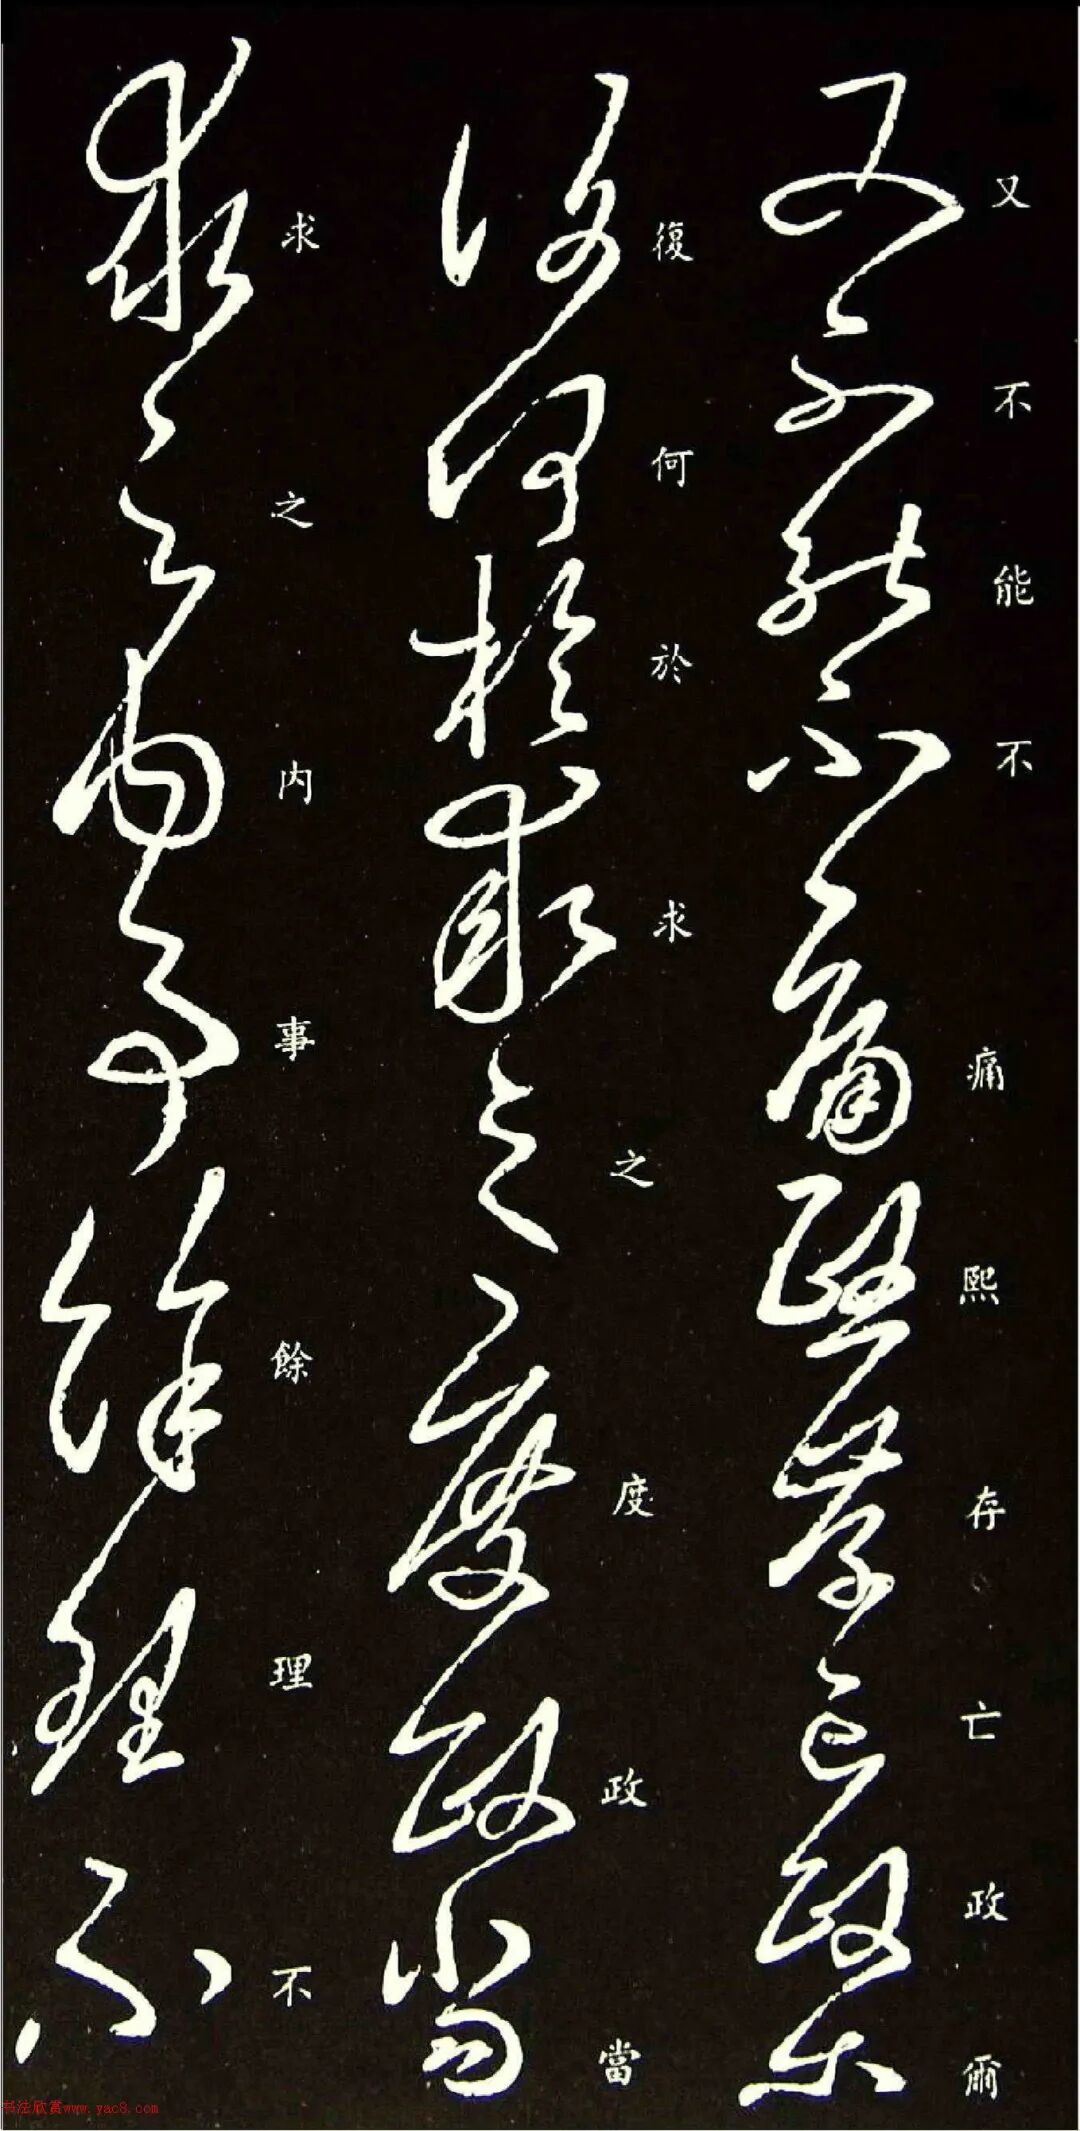 又不能不痛熙存亡政爾
復何於求之度政當
求之内事餘理不
书法欣赏www.yac8.com